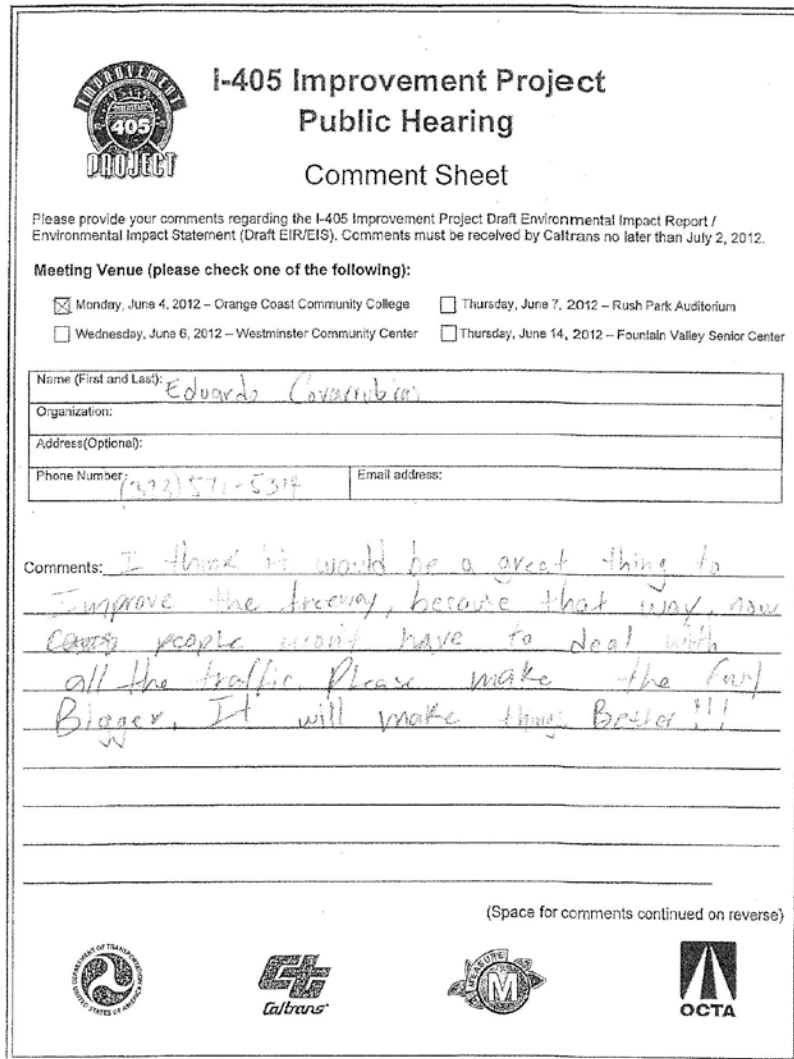 IMPROVEMENT
405
PROJECT
I-405 Improvement Project
Public Hearing
Comment Sheet
Please provide your comments regarding the I-405 Improvement Project Draft Environmental Impact Report /
Environmental Impact Statement (Draft EIR/EIS). Comments must be received by Caltrans no later than July 2, 2012.
Meeting Venue (please check one of the following):
Monday, June 4, 2012 – Orange Coast Community College Thursday, June 7, 2012 – Rush Park Auditorium
Wednesday, June 6, 2012 – Westminster Community Center Thursday, June 14, 2012 – Fountain Valley Senior Center
Name (First and Last): Eduardo Covarrubias
Organization:
Address(Optional):
Phone Number: Email address:
Comments: I think it would be a great thing to
Improve the freeway, because that way, now
people won't have to deal with
all the traffic. Please make the
Bigger. It will make things Better!!!
(Space for comments continued on reverse)
DEPARTMENT OF TRANSPORTATION
UNITED STATES OF AMERICA
Caltrans
MEASURE
M
OCTA